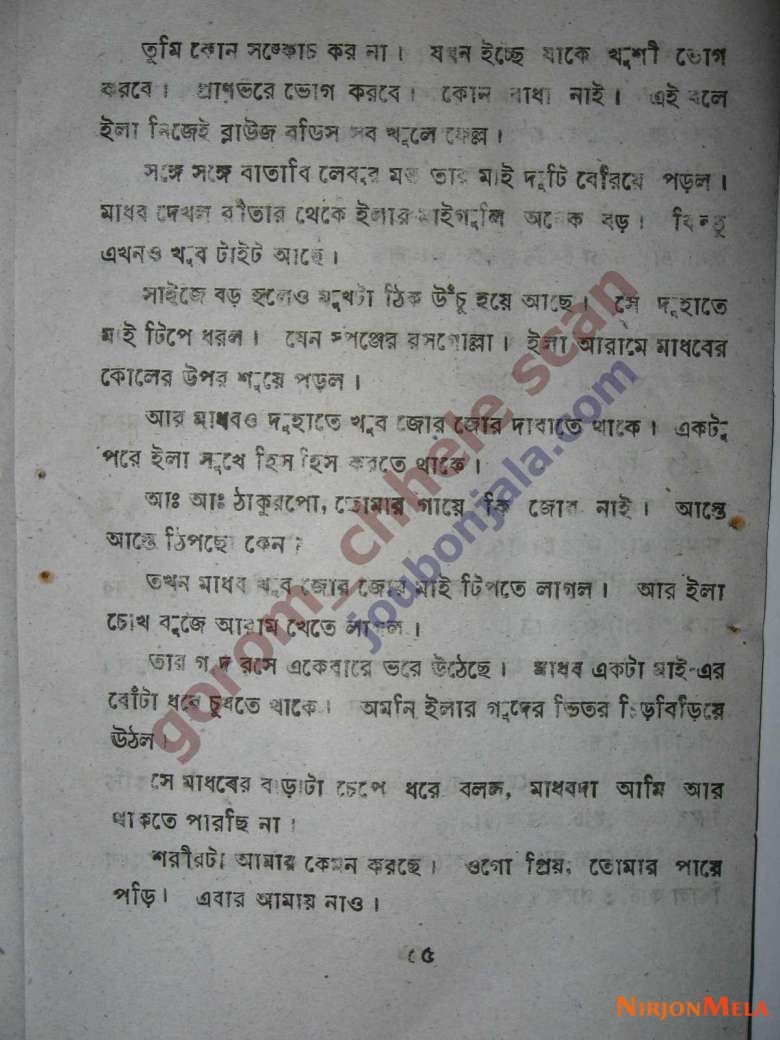 তুমি কোন সঙ্কোচ কর না। যখন ইচ্ছে যাকে খুশী ভোগ
করবে। প্রাণভরে ভোগ করবে। কোন বাধা নাই। এই বলে
ইলা নিজেই ব্লাউজ বডিস সব খুলে ফেল্ল।
সঙ্গে সঙ্গে বাতাবি লেবুর মত তার মাই দুটি বেরিয়ে পড়ল।
মাধব দেখল রীতার থেকে ইলার মাইগুলি অনেক বড়। কিন্তু
এখনও খুব টাইট আছে।
সাইজে বড় হলেও মুখটা ঠিক উঁচু হয়ে আছে। সে দুহাতে
মাই টিপে ধরল। যেন স্পঞ্জের রসগোল্লা। ইলা আরামে মাধবের
কোলের উপর শুয়ে পড়ল।
আর মাধবও দুহাতে খুব জোর জোর দাবাতে থাকে। একটু
পরে ইলা মুখে হিস হিস করতে থাকে।
আঃ আঃ ঠাকুরপো, তোমার গায়ে কি জোর নাই। আস্তে
আস্তে ঠিপছো কেন?
তখন মাধব খুব জোর জোর মাই টিপতে লাগল। আর ইলা
চোখ বুজে আরাম খেতে লাগল।
তার গুদ রসে একেবারে ভরে উঠেছে। মাধব একটা মাই-এর
বোঁটা ধরে চুষতে থাকে। অমনি ইলার গুদের ভিতর চিড়বিড়িয়ে
উঠল।
সে মাধবের বাড়াটা চেপে ধরে বলল, মাধবদা আমি আর
থাকতে পারছি না।
শরীরটা আমার কেমন করছে। ওগো প্রিয়, তোমার পায়ে
পড়ি। এবার আমায় নাও।
৫
gorom_chhele scan
joubonjala.com
NIRJONMELA